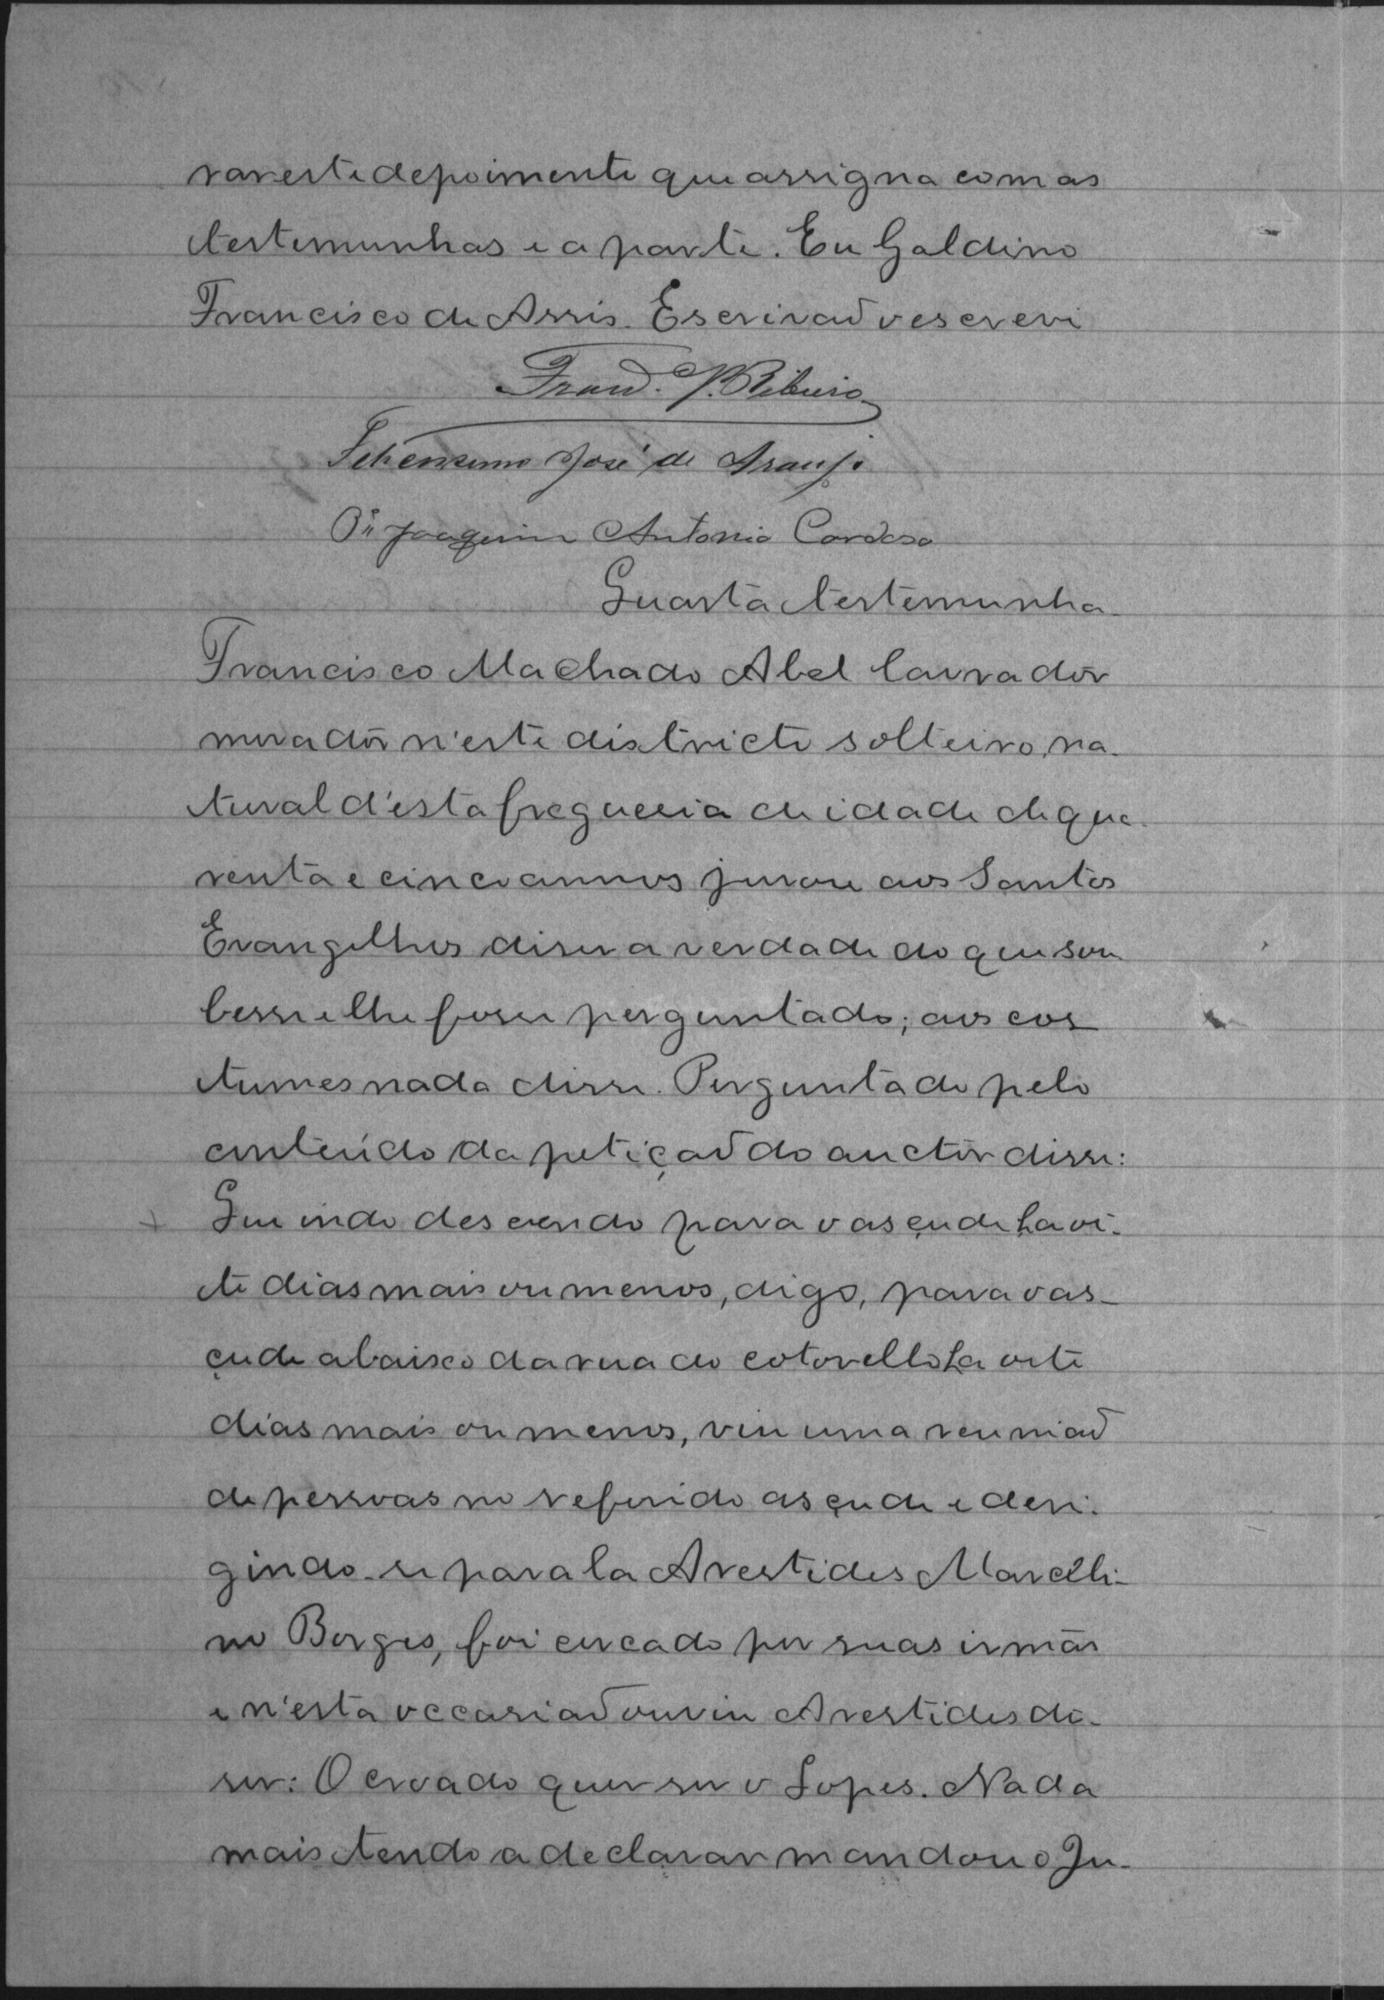 rar este depoimento que assigna com as
testemunhas e a parte. Eu Galdino
Francisco de Assis. Escrivaõ o escrevi
Franc.º P. Ribeiro
José de Araujo
Joaquim Antonio Cardoso
Quarta testemunha
Francisco Machado Abel lavradôr
moradôr n'este districto solteiro, na-
tural d'esta freguesia de idade de qua-
renta e cinco annos jurou aos Santos
Evangelhos diser a verdade do que sou
besse e lhe fosse perguntado; aos cos
tumes nada disse. Perguntado pelo
conteúdo da petiçaõ do auctôr disse:
Que indo descendo para o asçude ha oi-
to dias mais ou menos, digo, para o as-
çude abaixo da rua do cotovello ha oito
dias mais ou menos, viu uma reuniaõ
de pessoas no referido asçude e deri-
gindo-se para la Arestides Marcelli-
no Borges, foi cercado por suas irmãs
e n'esta occasiaõ ouviu Arestides di-
ser: O croado quer ser o Lopes. Nada
mais tendo a declarar mandou o Ju-